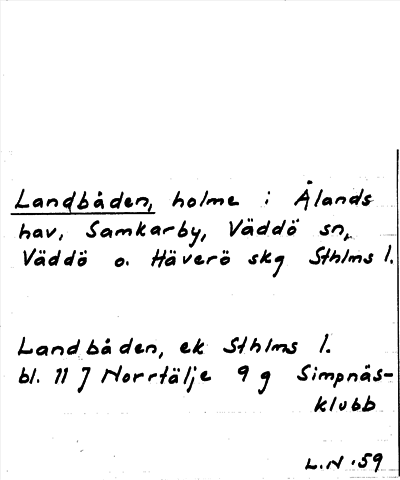 Landbåden, holme i Ålands
hav, Samkarby, Väddö sn,
Väddö o. Häverö skg Sthlms l.
Landbåden, ek Sthlms l.
bl. 11 J Norrtälje 9 g Simpnäs-
klubb
L.N.59